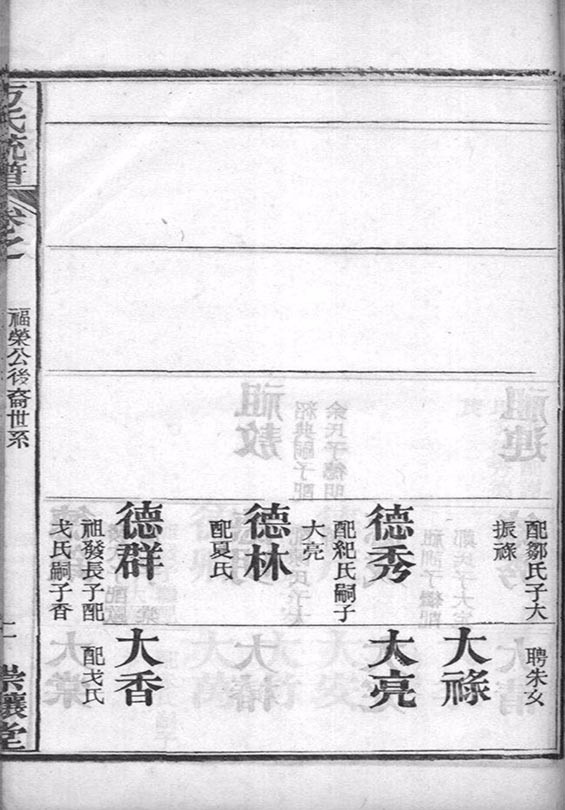 配鄒氏子大
振祿
德秀
配紀氏嗣子
大亮
德林
配夏氏
德群
祖發長子配
戈氏嗣子香
聘朱女
大祿
大亮
大香
配戈氏
方氏統譜
卷之
福榮公後裔世系
崇讓堂